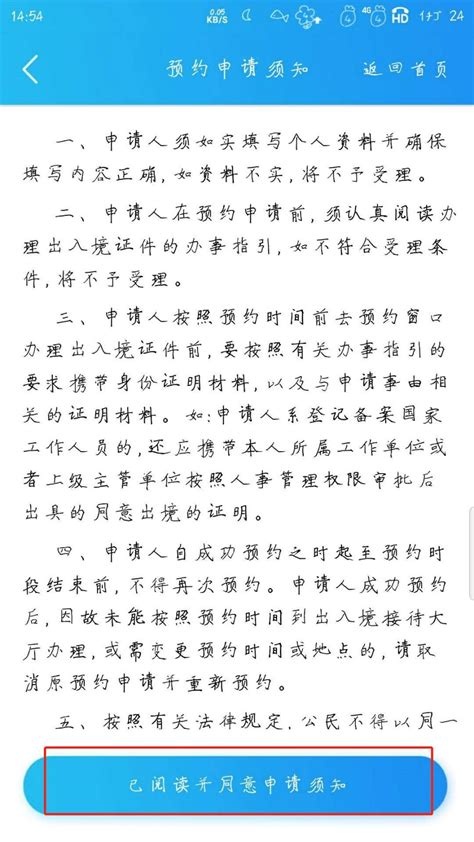 14:54 0.05 KB/S 4G HD 24
预约申请须知 返回首页
一、申请人须如实填写个人资料并确保
填写内容正确,如资料不实,将不予受理。
二、申请人在预约申请前,须认真阅读办
理出入境证件的办事指引,如不符合受理条
件,将不予受理。
三、申请人按照预约时间前去预约窗口
办理出入境证件前,要按照有关办事指引的
要求携带身份证明材料,以及与申请事由相
关的证明材料。如:申请人系登记备案国家
工作人员的,还应携带本人所属工作单位或
者上级主管单位按照人事管理权限审批后
出具的同意出境的证明。
四、申请人自成功预约之时起至预约时
段结束前,不得再次预约。申请人成功预约
后,因故未能按照预约时间到出入境接待大
厅办理,或需变更预约时间或地点的,请取
消原预约申请并重新预约。
五、按照有关法律规定,公民不得以同一
已阅读并同意申请须知